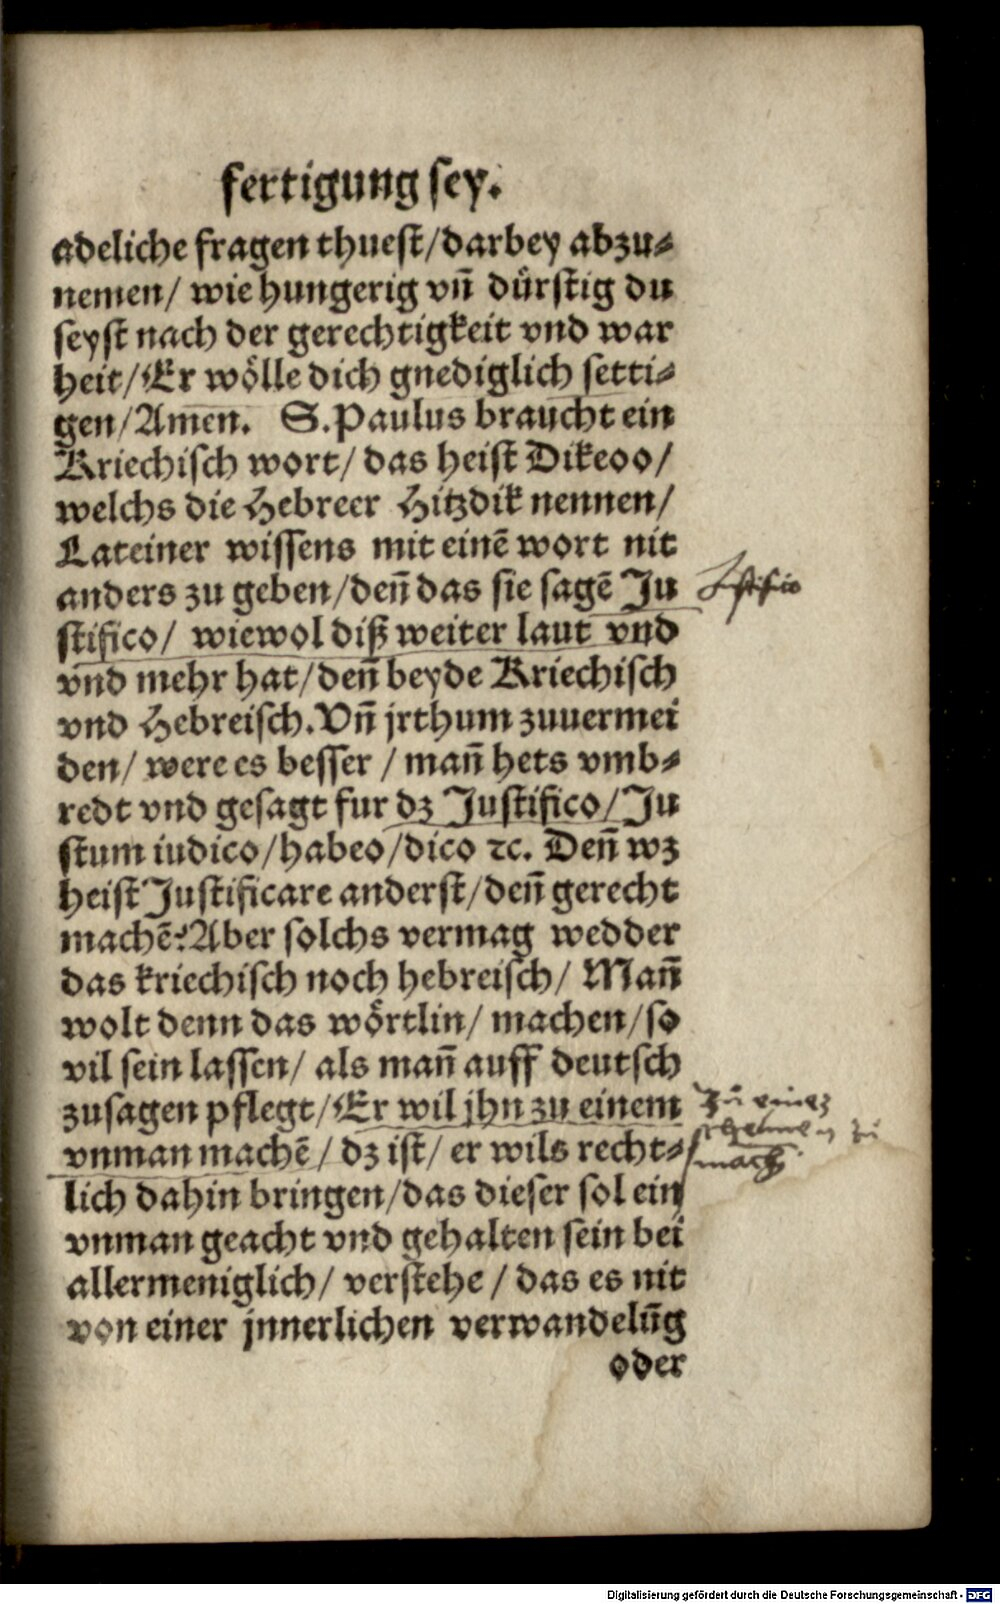 fertigung sey.
adeliche fragen thuest/darbey abzu⸗
nemen/ wie hungerig vñ dürstig du
seyst nach der gerechtigkeit vnd war
heit/Er wölle dich gnediglich setti⸗
gen/Amen. S.Paulus braucht ein
Kriechisch wort/ das heist Dikeoo/
welchs die Hebreer Hitzdik nennen/
Lateiner wissens mit einẽ wort nit
anders zu geben/deñ das sie sagẽ Ju
stifico/ wiewol diß weiter laut vnd
vnd mehr hat/deñ beyde Kriechisch
vnd Hebreisch.Vñ jrthum zuuermei
den/ were es besser / mañ hets vmb⸗
redt vnd gesagt fur dz Justifico/Ju
stum iudico/habeo/dico ⁊c. Deñ wz
heist Justificare anderst/deñ gerecht
machẽ? Aber solchs vermag wedder
das kriechisch noch hebreisch/ Mañ
wolt denn das wörtlin/ machen/so
vil sein lassen/ als mañ auff deutsch
zusagen pflegt/Er wil jhn zu einem
vnman machẽ/ dz ist/ er wils recht⸗
lich dahin bringen/das dieser sol ein
vnman geacht vnd gehalten sein bei
allermeniglich/ verstehe / das es nit
von einer jnnerlichen verwandelũg
oder
Justifico
Digitalisierung gefördert durch die Deutsche Forschungsgemeinschaft - DFG